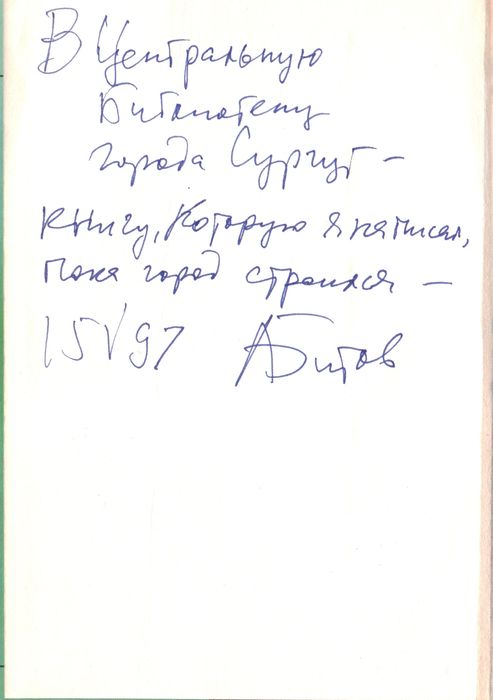 В Центральную
Библиотеку
города Сургут –
книгу, которую я написал,
пока город строился –
15 V 97 АБитов